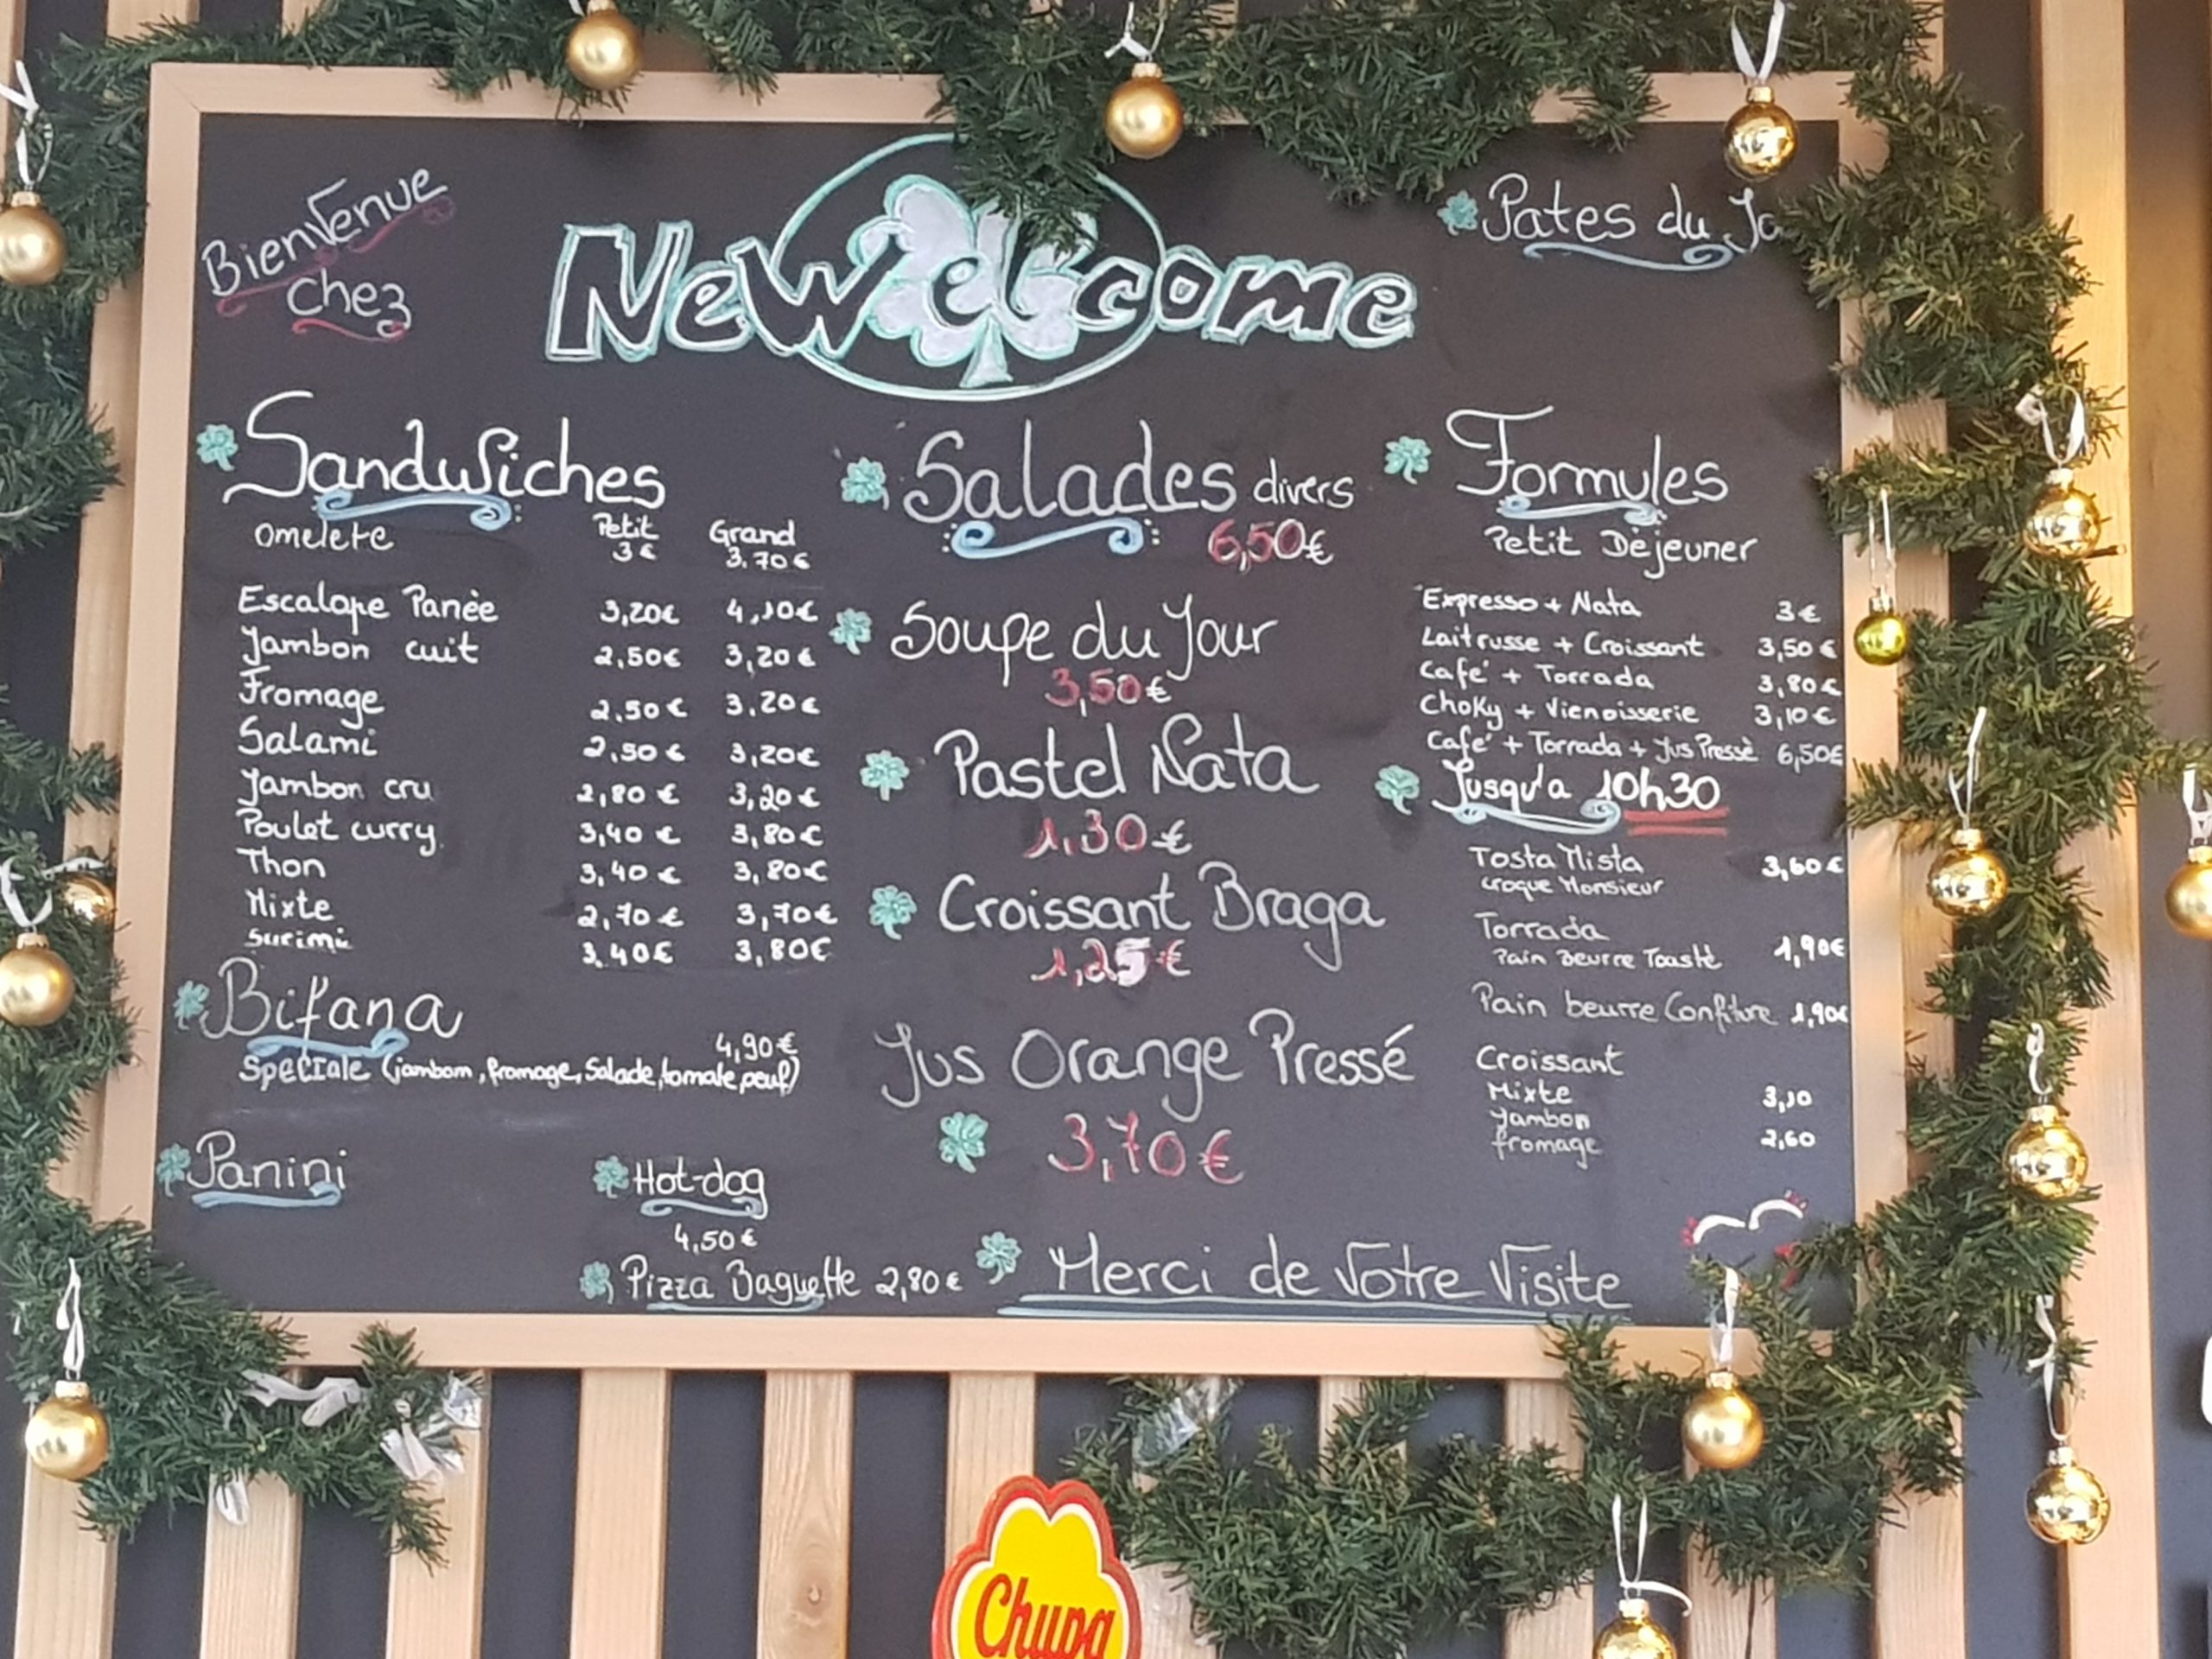 Bienvenue
chez
Newelcome
Pates du
Sandwiches
Petit Grand
Omelete 3€ 3.70€
Escalope Panèe 3,20€ 4,10€
Jambon cuit 2,50€ 3,20€
Fromage 2.50€ 3.20€
Salami 2,50€ 3,20€
Jambon cru 2,80€ 3,20€
Poulet curry 3,40€ 3,80€
Thon 3,40€ 3,80€
Mixte 2,70€ 3,70€
Surimi 3,40€ 3,80€
Bifana
4,90€
Speciale (jambom, fromage, Salade, tomate, peuf)
Panini
Hot-dog
4,50€
Pizza Baguette 2,80€
Salades divers
6,50€
Soupe du Jour
3,50€
Pastel Nata
1,30€
Croissant Braga
1,25€
Jus Orange Pressé
3,70€
Formules
Petit Dèjeuner
Expresso + Nata 3€
Lait russe + Croissant 3,50€
Café + Torrada 3,80€
Choky + Vienoisserie 3,10€
Café + Torrada + Jus Pressè 6,50€
Jusqu'a 10h30
Tosta Mista 3,60€
croque Monsieur
Torrada
Pain Beurre Toastè 1,90€
Pain beurre Confiture 1,90€
Croissant
Mixte 3,10
Jambon
fromage 2,60
Merci de Votre Visite
Chupa